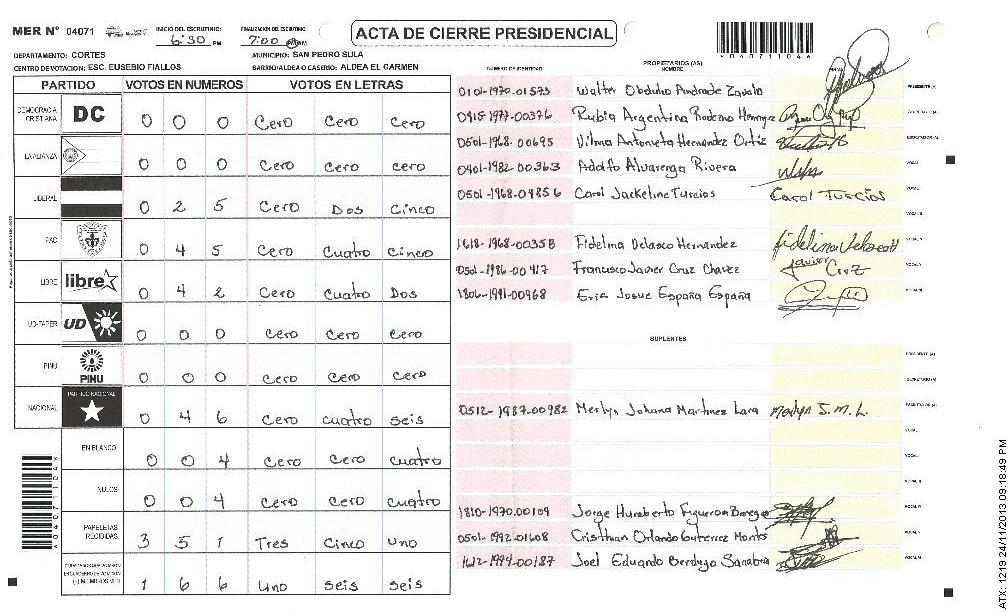 MER Nº 04071 INICIO DEL ESCRUTINIO: 6:30 PM FINALIZACION DEL ESCRUTINIO: 7:00 PM
ACTA DE CIERRE PRESIDENCIAL
DEPARTAMENTO: CORTES MUNICIPIO: SAN PEDRO SULA
CENTRO DE VOTACION: ESC. EUSEBIO FIALLOS BARRIO/ALDEA O CASERIO: ALDEA EL CARMEN
PARTIDO VOTOS EN NUMEROS VOTOS EN LETRAS
DEMOCRACIA CRISTIANA DC 0 0 0 Cero Cero Cero
LA ALIANZA 0 0 0 Cero Cero cero
LIBERAL 0 2 5 Cero Dos Cinco
PAC 0 4 5 Cero Cuatro Cinco
LIBRE libre 0 4 2 Cero Cuatro Dos
UD-FAPER UD 0 0 0 Cero Cero cero
PINU PINU 0 0 0 Cero Cero Cero
NACIONAL PARTIDO NACIONAL 0 4 6 Cero cuatro seis
EN BLANCO 0 0 4 Cero Cero cuatro
NULOS 0 0 4 Cero Cero cuatro
PAPELETAS RECIBIDAS 3 5 1 Tres Cinco uno
1 6 6 Uno seis seis
NUMERO DE IDENTIDAD PROPIETARIOS (AS) NOMBRE
0101-1970-01573 Walter Obdulio Andrade Zavala PRESIDENTE (A)
0415-1977-00376 Rubia Argentina Rodezno Henryez
0501-1968-00695 Vilma Antonieta Hernandez Ortiz
0401-1982-00363 Adolfo Alvarenga Rivera
0501-1968-04856 Carol Jackeline Turcios Carol Turcios
1618-1968-00358 Fidelina Velasco Hernandez
0501-1986-00417 Francisco Javier Cruz Chavez Javier Cruz
1806-1991-00968 Eric Josue España España
SUPLENTES
PRESIDENTE (A)
SECRETARIO (A)
0512-1987-00982 Merlyn Johana Martinez Lara Merlyn J.M.L.
1810-1970-00109 Jorge Humberto Figueroa
0501-1992-01608 Cristhian Orlando Gutierrez Montes
1612-1994-00187 Joel Eduardo Berdugo Sanabria
*040711046*
ATX: 1219 24/11/2013 09:18:49 PM